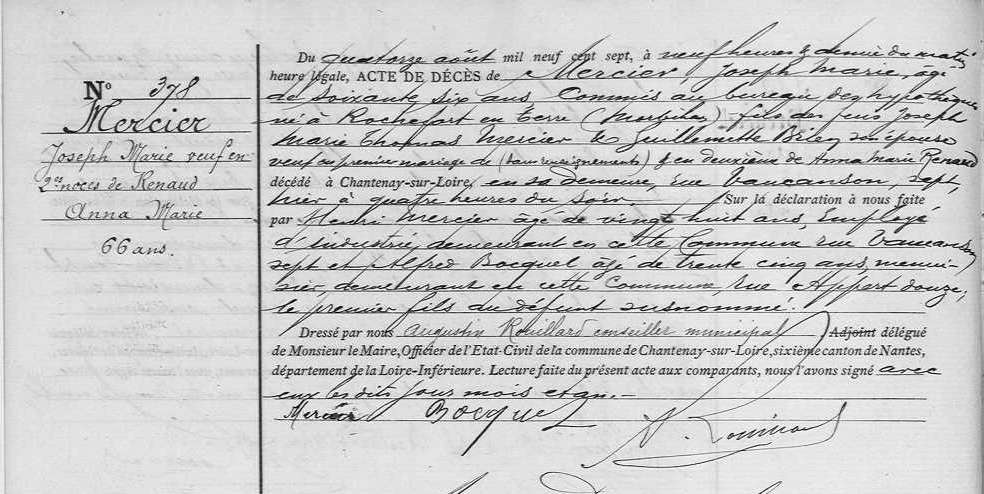 N° 378
Mercier
Joseph Marie veuf en
2es noces de Renaud
Anna Marie
66 ans.
Du quatorze août mil neuf cent sept, à neuf heures & demie du matin
heure légale, ACTE DE DÉCÈS de Mercier Joseph Marie, âgé
de soixante six ans Commis au bureau des hypothèques
né à Rochefort en Terre (Morbihan) fils des feus Joseph
Marie Thomas Mercier & Guillemette son épouse
veuf en premier mariage de (sans renseignements) & en deuxième de Anna Marie Renaud
décédé à Chantenay-sur-Loire, en sa demeure, rue Vaucanson, sept,
hier à quatre heures du soir. Sur la déclaration à nous faite
par Henri Mercier âgé de vingt huit ans, Employé
d'industrie, demeurant en cette Commune rue Vaucanson
sept et Alfred Bocquel âgé de trente cinq ans, menui-
sier, demeurant en cette Commune, rue Appert douze;
le premier fils du défunt susnommé.
Dressé par nous Augustin Rouillard conseiller municipal Adjoint délégué
de Monsieur le Maire, Officier de l'Etat-Civil de la commune de Chantenay-sur-Loire, sixième canton de Nantes,
département de la Loire-Inférieure. Lecture faite du présent acte aux comparants, nous l'avons signé avec
eux les dits jour mois et an.-
Mercier Bocquel